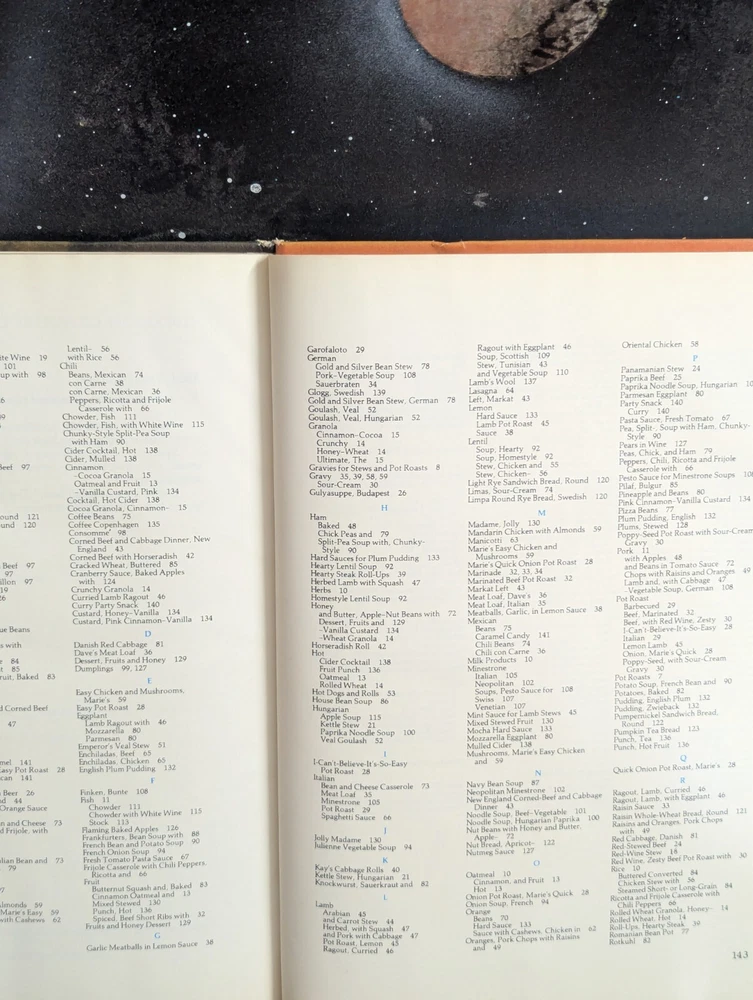 ite Wine 19
101
up with 98
6
9
6
Beef 97
ound 121
und 120
Beef 97
97
illon 97
19
26
ue Beans
s with
r 84
t 85
ruit, Baked 83
d Corned Beef
47
mel 141
asy Pot Roast 28
can 141
Beer 26
nd 44
Orange Sauce
an and Cheese 73
d Frijole, with
lian Bean and 73
79
97
Almonds 59
Marie's Easy 59
Cashews 62
Lentil- 56
with Rice 56
Chili
Beans, Mexican 74
con Carne 38
con Carne, Mexican 36
Peppers, Ricotta and Frijole
Casserole with 66
Chowder, Fish 111
Chowder, Fish, with White Wine 115
Chunky-Style Split-Pea Soup
with Ham 90
Cider Cocktail, Hot 138
Cider, Mulled 138
Cinnamon
-Cocoa Granola 15
Oatmeal and Fruit 13
-Vanilla Custard, Pink 134
Cocktail, Hot Cider 138
Cocoa Granola, Cinnamon- 15
Coffee Beans 75
Coffee Copenhagen 135
Consomme' 98
Corned Beef and Cabbage Dinner, New
England 43
Corned Beef with Horseradish 42
Cracked Wheat, Buttered 85
Cranberry Sauce, Baked Apples
with 124
Crunchy Granola 14
Curried Lamb Ragout 46
Curry Party Snack 140
Custard, Honey-Vanilla 134
Custard, Pink Cinnamon-Vanilla 134
D
Danish Red Cabbage 81
Dave's Meat Loaf 36
Dessert, Fruits and Honey 129
Dumplings 99, 127
E
Easy Chicken and Mushrooms,
Marie's 59
Easy Pot Roast 28
Eggplant
Lamb Ragout with 46
Mozzarella 80
Parmesan 80
Emperor's Veal Stew 51
Enchiladas, Beef 65
Enchiladas, Chicken 65
English Plum Pudding 132
F
Finken, Bunte 108
Fish 11
Chowder 111
Chowder with White Wine 115
Stock 113
Flaming Baked Apples 126
Frankfurters, Bean Soup with 88
French Bean and Potato Soup 90
French Onion Soup 94
Fresh Tomato Pasta Sauce 67
Frijole Casserole with Chili Peppers,
Ricotta and 66
Fruit
Butternut Squash and, Baked 83
Cinnamon Oatmeal and 13
Mixed Stewed 130
Punch, Hot 136
Spiced, Beef Short Ribs with 32
Fruits and Honey Dessert 129
G
Garlic Meatballs in Lemon Sauce 38
Garofaloto 29
German
Gold and Silver Bean Stew 78
Pork-Vegetable Soup 108
Sauerbraten 34
Glogg, Swedish 139
Gold and Silver Bean Stew, German 78
Goulash, Veal 52
Goulash, Veal, Hungarian 52
Granola
Cinnamon-Cocoa 15
Crunchy 14
Honey-Wheat 14
Ultimate, The 15
Gravies for Stews and Pot Roasts 8
Gravy 35, 39, 58, 59
Sour-Cream 30
Gulyassuppe, Budapest 26
H
Ham
Baked 48
Chick Peas and 79
Split-Pea Soup with, Chunky-
Style 90
Hard Sauces for Plum Pudding 133
Hearty Lentil Soup 92
Hearty Steak Roll-Ups 39
Herbed Lamb with Squash 47
Herbs 10
Homestyle Lentil Soup 92
Honey
and Butter, Apple-Nut Beans with 72
Dessert, Fruits and 129
-Vanilla Custard 134
-Wheat Granola 14
Horseradish Roll 42
Hot
Cider Cocktail 138
Fruit Punch 136
Oatmeal 13
Rolled Wheat 14
Hot Dogs and Rolls 53
House Bean Soup 86
Hungarian
Apple Soup 115
Kettle Stew 21
Paprika Noodle Soup 100
Veal Goulash 52
I
I-Can't-Believe-It's-So-Easy
Pot Roast 28
Italian
Bean and Cheese Casserole 73
Meat Loaf 35
Minestrone 105
Pot Roast 29
Spaghetti Sauce 66
J
Jolly Madame 130
Julienne Vegetable Soup 94
K
Kay's Cabbage Rolls 40
Kettle Stew, Hungarian 21
Knockwurst, Sauerkraut and 82
L
Lamb
Arabian 45
and Carrot Stew 44
Herbed, with Squash 47
and Pork with Cabbage 47
Pot Roast, Lemon 45
Ragout, Curried 46
Ragout with Eggplant 46
Soup, Scottish 109
Stew, Tunisian 43
and Vegetable Soup 110
Lamb's Wool 137
Lasagna 64
Left, Markat 43
Lemon
Hard Sauce 133
Lamb Pot Roast 45
Sauce 38
Lentil
Soup, Hearty 92
Soup, Homestyle 92
Stew, Chicken and 55
Stew, Chicken- 56
Light Rye Sandwich Bread, Round 120
Limas, Sour-Cream 74
Limpa Round Rye Bread, Swedish 120
M
Madame, Jolly 130
Mandarin Chicken with Almonds 59
Manicotti 63
Marie's Easy Chicken and
Mushrooms 59
Marie's Quick Onion Pot Roast 28
Marinade 32, 33, 34
Marinated Beef Pot Roast 32
Markat Left 43
Meat Loaf, Dave's 36
Meat Loaf, Italian 35
Meatballs, Garlic, in Lemon Sauce 38
Mexican
Beans 75
Caramel Candy 141
Chili Beans 74
Chili con Carne 36
Milk Products 10
Minestrone
Italian 105
Neopolitan 102
Soups, Pesto Sauce for 108
Swiss 107
Venetian 107
Mint Sauce for Lamb Stews 45
Mixed Stewed Fruit 130
Mocha Hard Sauce 133
Mozzarella Eggplant 80
Mulled Cider 138
Mushrooms, Marie's Easy Chicken
and 59
N
Navy Bean Soup 87
Neopolitan Minestrone 102
New England Corned-Beef and Cabbage
Dinner 43
Noodle Soup, Beef-Vegetable 101
Noodle Soup, Hungarian Paprika 100
Nut Beans with Honey and Butter,
Apple- 72
Nut Bread, Apricot- 122
Nutmeg Sauce 127
O
Oatmeal 10
Cinnamon, and Fruit 13
Hot 13
Onion Pot Roast, Marie's Quick 28
Onion Soup, French 94
Orange
Beans 70
Hard Sauce 133
Sauce with Cashews, Chicken in 62
Oranges, Pork Chops with Raisins
and 49
Oriental Chicken 58
P
Panamanian Stew 24
Paprika Beef 25
Paprika Noodle Soup, Hungarian 10
Parmesan Eggplant 80
Party Snack 140
Curry 140
Pasta Sauce, Fresh Tomato 67
Pea, Split-, Soup with Ham, Chunky-
Style 90
Pears in Wine 127
Peas, Chick, and Ham 79
Peppers, Chili, Ricotta and Frijole
Casserole with 66
Pesto Sauce for Minestrone Soups 108
Pilaf, Bulgur 85
Pineapple and Beans 80
Pink Cinnamon-Vanilla Custard 134
Pizza Beans 77
Plum Pudding, English 132
Plums, Stewed 128
Poppy-Seed Pot Roast with Sour-Cream
Gravy 30
Pork 11
with Apples 48
and Beans in Tomato Sauce 72
Chops with Raisins and Oranges 49
Lamb and, with Cabbage 47
-Vegetable Soup, German 108
Pot Roast
Barbecued 29
Beef, Marinated 32
Beef, with Red Wine, Zesty 30
I-Can't-Believe-It's-So-Easy 28
Italian 29
Lemon Lamb 45
Onion, Marie's Quick 28
Poppy-Seed, with Sour-Cream
Gravy 30
Pot Roasts 7
Potato Soup, French Bean and 90
Potatoes, Baked 82
Pudding, English Plum 132
Pudding, Zwieback 132
Pumpernickel Sandwich Bread,
Round 122
Pumpkin Tea Bread 123
Punch, Tea 136
Punch, Hot Fruit 136
Q
Quick Onion Pot Roast, Marie's 28
R
Ragout, Lamb, Curried 46
Ragout, Lamb, with Eggplant 46
Raisin Sauce 33
Raisin Whole-Wheat Bread, Round 121
Raisins and Oranges, Pork Chops
with 49
Red Cabbage, Danish 81
Red-Stewed Beef 24
Red-Wine Stew 18
Red Wine, Zesty Beef Pot Roast with 30
Rice 10
Buttered Converted 84
Chicken Stew with 56
Steamed Short- or Long-Grain 84
Ricotta and Frijole Casserole with
Chili Peppers 66
Rolled Wheat Granola, Honey- 14
Rolled Wheat, Hot 14
Roll-Ups, Hearty Steak 39
Romanian Bean Pot 77
Rotkuhl 82
143